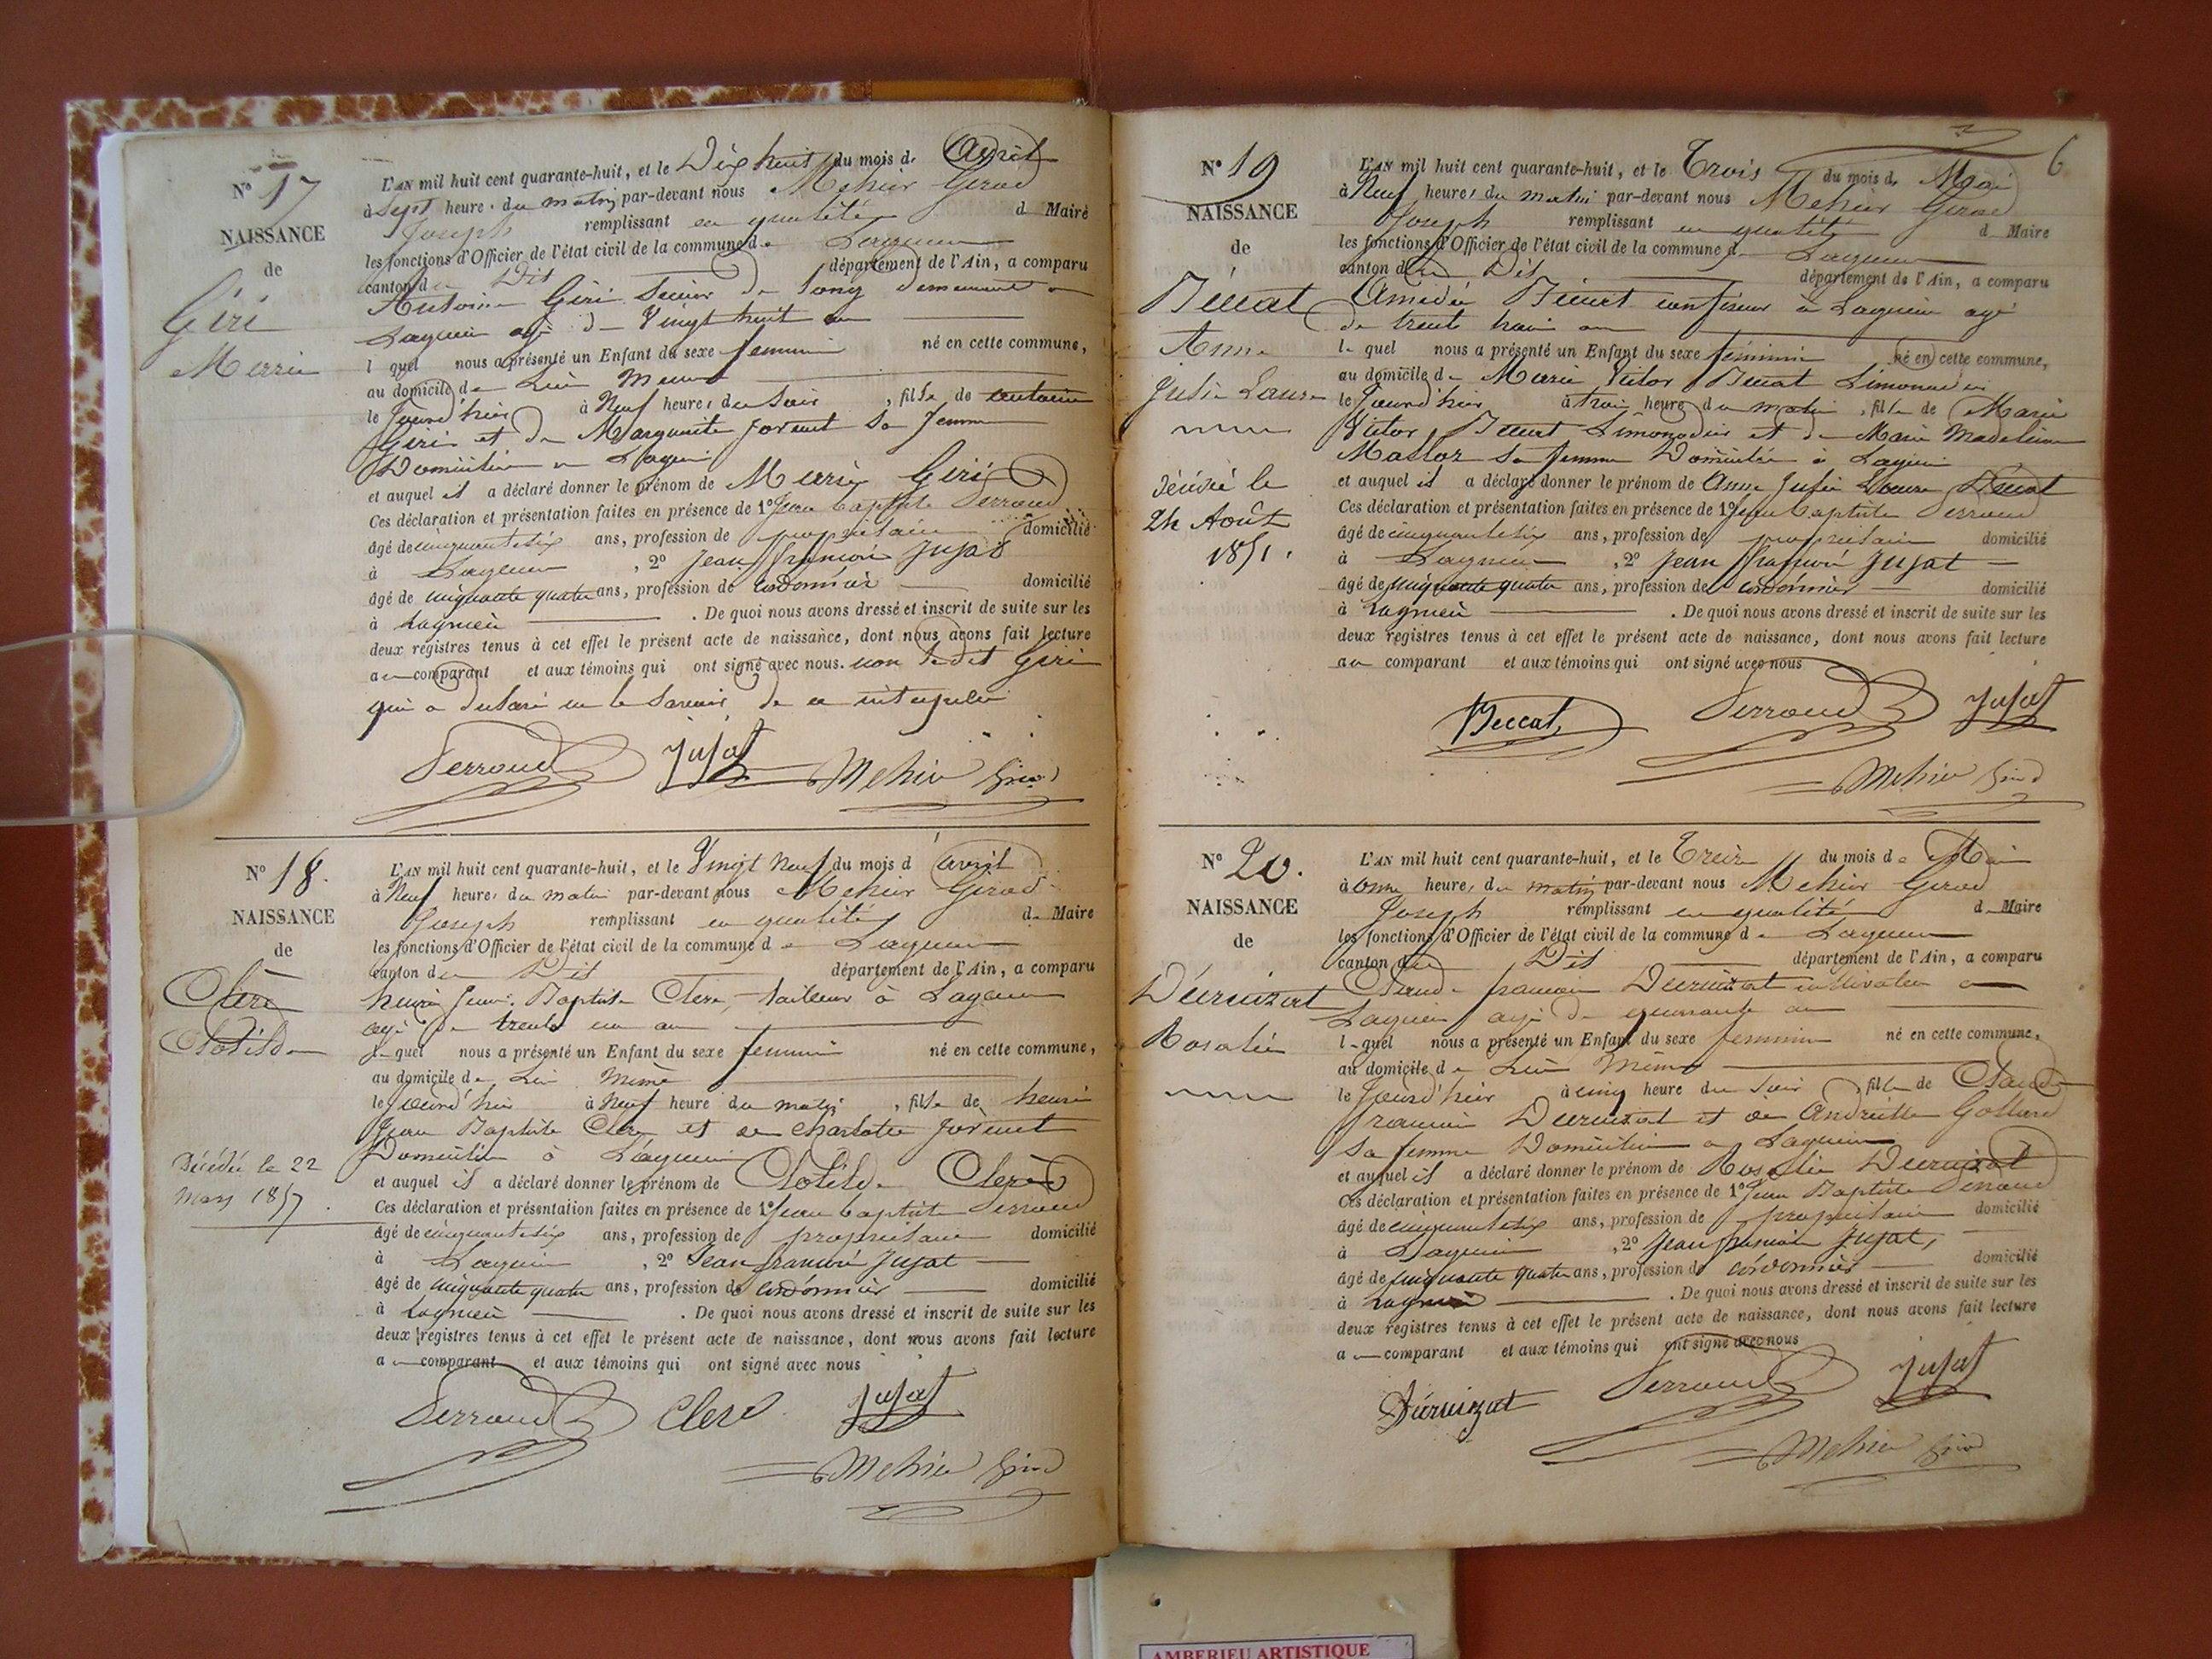 N° 17
NAISSANCE
de
Giri
Marie
L'AN mil huit cent quarante-huit, et le Dix huit du mois d. Avril
à Sept heures du matin par-devant nous Mehier Girod
Joseph remplissant en qualité d Maire
les fonctions d'Officier de l'état civil de la commune de Lagnieu
canton du Dit département de l'Ain, a comparu
Antoine Giri de Long demeurant a
Lagnieu agé de Vingt huit an
l quel nous a présenté un Enfant du sexe feminin né en cette commune,
au domicile de Lui meme
le Jourd'hier à Neuf heures du Soir, fille de antoine
Giri et de Marguerite forent Sa femme
Domicilié a Lagnieu
et auquel il a déclaré donner le prénom de Marie Giri
Ces déclaration et présentation faites en présence de 1° Jean Baptiste Perroud
âgé de cinquante six ans, profession de propriétaire domicilié
à Lagnieu, 2° Jean françois Jujat
âgé de cinquante quatre ans, profession de cordonnier domicilié
à Lagnieu. De quoi nous avons dressé et inscrit de suite sur les
deux registres tenus à cet effet le présent acte de naissance, dont nous avons fait lecture
au comparant et aux témoins qui ont signé avec nous. non ledit Giri
qui a déclaré ne le Savoir de ce interpelé
Perroud Jujat Mehier Girod
N° 18.
NAISSANCE
de
Clerc
Clotilde
Décédée le 22
Mars 1857.
L'AN mil huit cent quarante-huit, et le Vingt Neuf du mois d avril
à Neuf heures du matin par-devant nous Mehier Girod
Joseph remplissant en qualité de Maire
les fonctions d'Officier de l'état civil de la commune de Lagnieu
canton du Dit département de l'Ain, a comparu
henri Jean Baptiste Clerc, tailleur à Lagnieu
agé de trente un an
le quel nous a présenté un Enfant du sexe feminin né en cette commune,
au domicile de Lui Même
le Jourd'hui à Neuf heure du matin, fille de henri
Jean Baptiste Clerc et de Charlotte forent
Domicilié à Lagnieu
et auquel il a déclaré donner le prénom de Clotilde Clerc
Ces déclaration et présentation faites en présence de 1° Jean Baptiste Perroud
âgé de cinquante six ans, profession de propriétaire domicilié
à Lagnieu, 2° Jean françois Jujat
âgé de cinquante quatre ans, profession de cordonnier domicilié
à Lagnieu. De quoi nous avons dressé et inscrit de suite sur les
deux registres tenus à cet effet le présent acte de naissance, dont nous avons fait lecture
au comparant et aux témoins qui ont signé avec nous
Perroud Clerc Jujat
Mehier Girod
6
N° 19
NAISSANCE
de
Beccat
Anne
Julie Laure
décédée le
24 Août
1851.
L'AN mil huit cent quarante-huit, et le Trois du mois de Mai
à Neuf heures du matin par-devant nous Mehier Girod
Joseph remplissant en qualité d Maire
les fonctions d'Officier de l'état civil de la commune de Lagnieu
canton du Dit département de l'Ain, a comparu
Amédée Beccat confiseur à Lagnieu agé
de trente trois an
le quel nous a présenté un Enfant du sexe féminin né en cette commune,
au domicile de Marie Victor Beccat Limonadier
le Jourd'hier à trois heures du matin, fille de Marie
Victor Beccat Limonadier et de Marie Madeleine
sa femme Domicilié à Lagnieu
et auquel il a déclaré donner le prénom de Anne Julie Laure Beccat
Ces déclaration et présentation faites en présence de 1° Jean Baptiste Perroud
âgé de cinquante six ans, profession de propriétaire domicilié
à Lagnieu, 2° Jean françois Jujat
âgé de cinquante quatre ans, profession de cordonnier domicilié
à Lagnieu. De quoi nous avons dressé et inscrit de suite sur les
deux registres tenus à cet effet le présent acte de naissance, dont nous avons fait lecture
au comparant et aux témoins qui ont signé avec nous
Beccat Perroud Jujat
Mehier Girod
N° 20.
NAISSANCE
de
Rosalie
L'AN mil huit cent quarante-huit, et le Treize du mois de Mai
à onze heures du matin par-devant nous Mehier Girod
Joseph remplissant en qualité d Maire
les fonctions d'Officier de l'état civil de la commune de Lagnieu
canton du Dit département de l'Ain, a comparu
Claude françois cultivateur a
Lagnieu agé de quarante an
l quel nous a présenté un Enfant du sexe feminin né en cette commune,
au domicile de Lui Même
le Jourd'hier à cinq heure du Soir, fille de Claude
françois et de Andréette
Sa femme Domicilié a Lagnieu
et auquel il a déclaré donner le prénom de Rosalie
Ces déclaration et présentation faites en présence de 1° Jean Baptiste Perroud
âgé de cinquante six ans, profession de propriétaire domicilié
à Lagnieu, 2° Jean françois Jujat,
âgé de cinquante quatre ans, profession de cordonnier domicilié
à Lagnieu. De quoi nous avons dressé et inscrit de suite sur les
deux registres tenus à cet effet le présent acte de naissance, dont nous avons fait lecture
au comparant et aux témoins qui ont signé avec nous
Perroud Jujat
Mehier Girod
AMBERIEU ARTISTIQUE